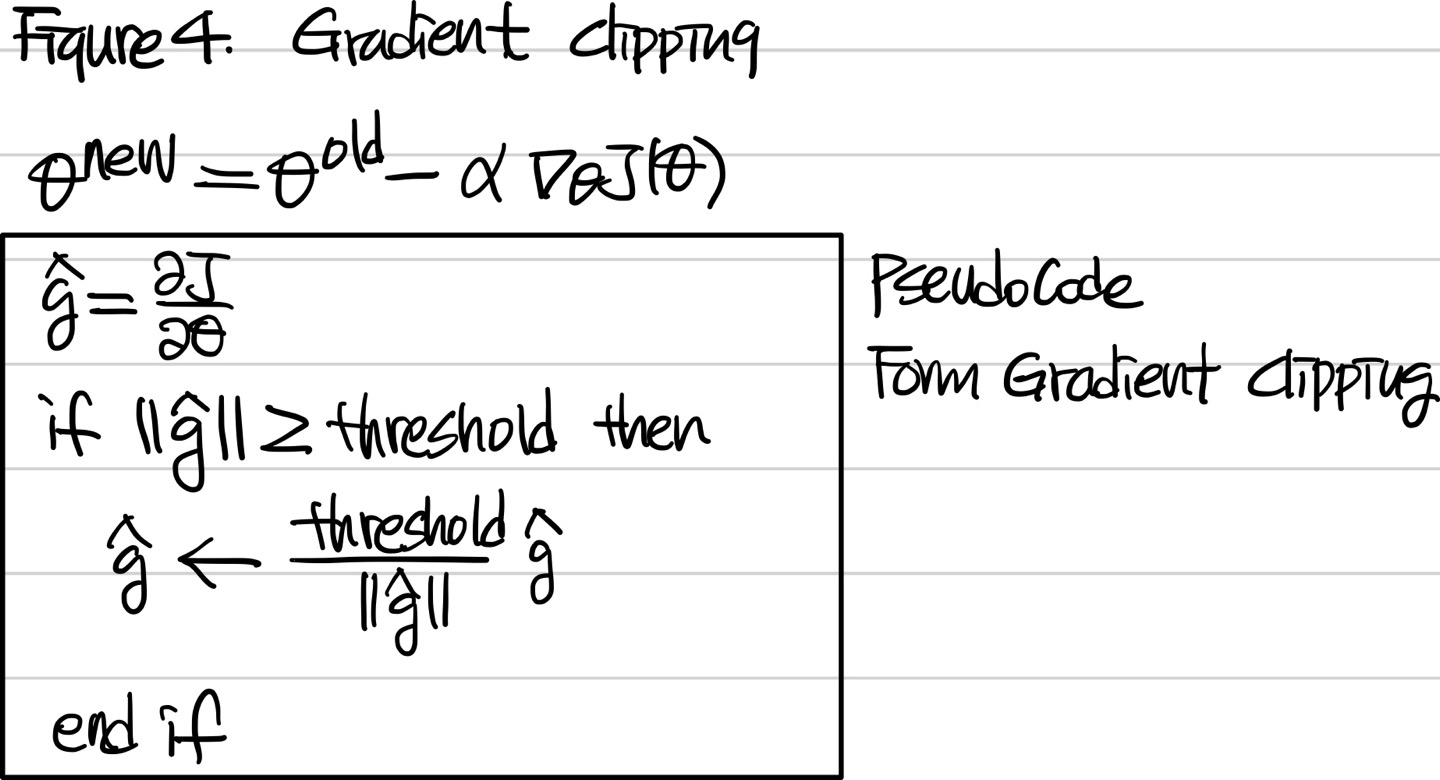 Figure 4. Gradient clipping
θ^new = θ^old − α ∇θJ(θ)
ĝ = ∂J/∂θ
if ||ĝ|| ≥ threshold then
ĝ ← threshold/||ĝ|| ĝ
end if
PseudoCode
Form Gradient clipping